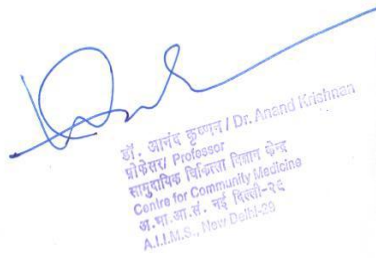 डॉ. आनंद कृष्णन / Dr. Anand Krishnan
प्रोफेसर/ Professor
सामुदायिक चिकित्सा विज्ञान केन्द्र
Centre for Community Medicine
अ.भा.आ.सं. नई दिल्ली-२६
A.I.I.M.S., New Delhi-29